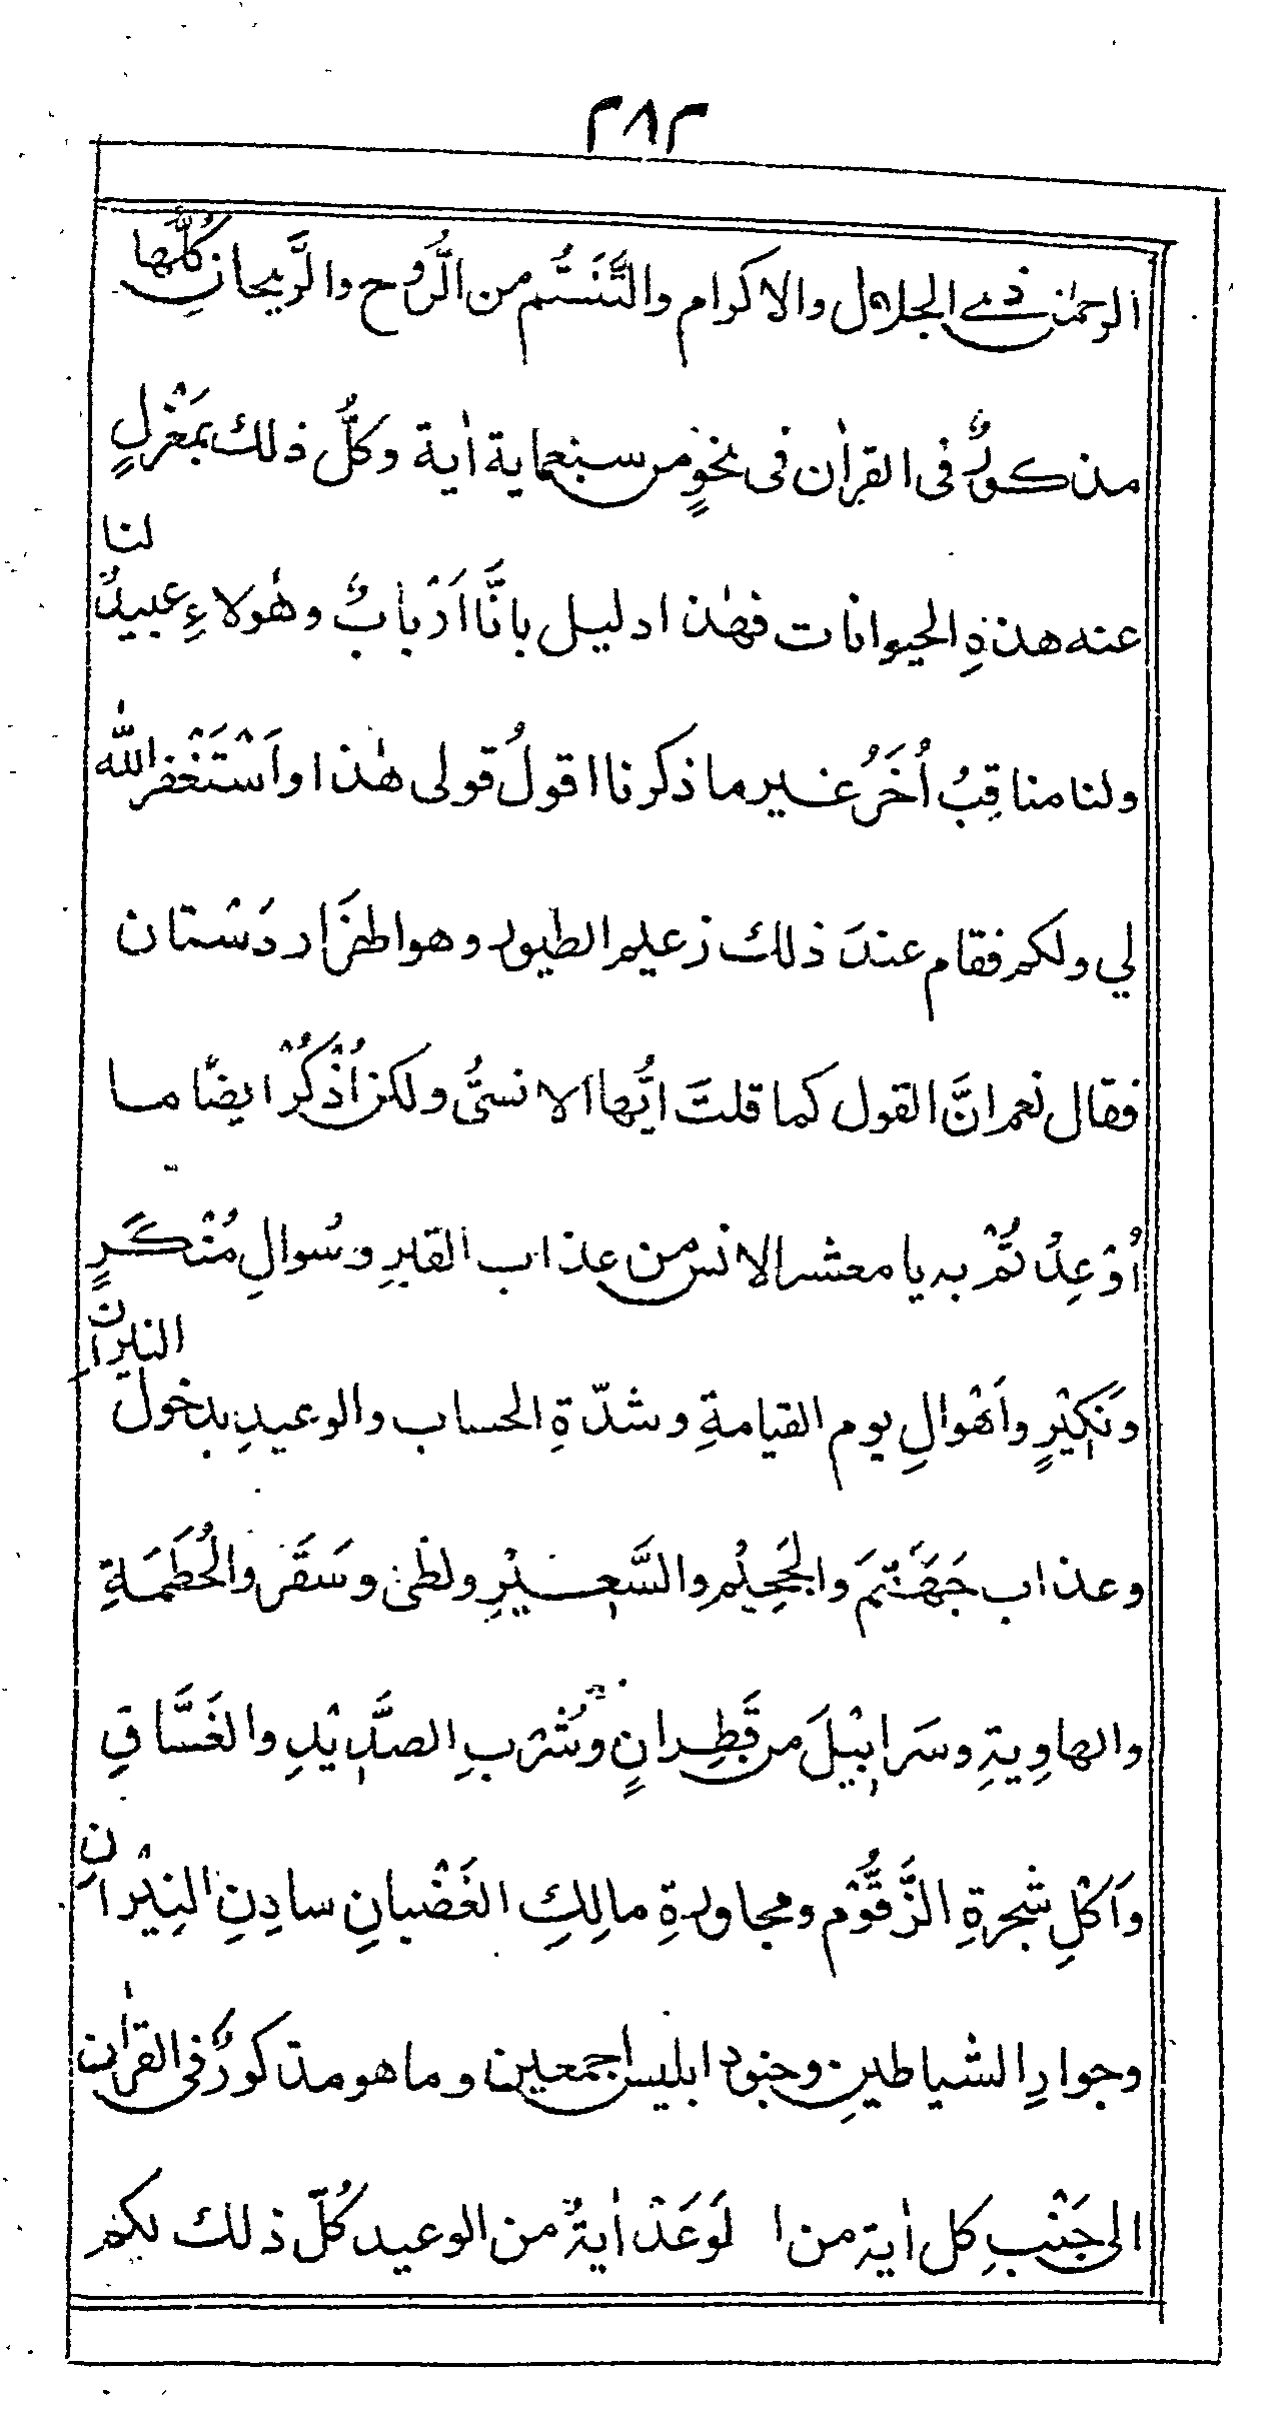 ٢٨٣
الرحمٰن ذي الجلال والاكرام والتَّنَسُّم من الرُّوح والرَّيحان كُلُّها
مذكورٌ في القراٰن في نحوٍ من سبعماية اٰية وكلُّ ذلك بمَعْزلٍ
عنه هذهِ الحيوانات فهٰذا دليل بانَّا اَرْبابٌ وهٰولاءِ عبيدٌ لنا
ولنا مناقِبُ اُخَرُ غير ما ذكرنا اقولُ قولى هٰذا واَسْتَغْفر اللّٰه
لي ولكم فقام عندَ ذلك زعيم الطيور وهو الهَزَار دَسْتان
فقال نعم انَّ القول كما قلتَ ايُّها الانسىُّ ولكن اُذْكُرْ ايضًا ما
اُوْعِدْتُمْ به يا معشر الانس من عذاب القبرِ وسُوالِ مُنْكَرٍ
ونَكِيْرٍ واَهْوالِ يوم القيامةِ وشدّةِ الحساب والوعيدِ بدخول النيران
وعذاب جَهَنّمَ والجَحِيْم والسَّعِيْرِ ولظٰى وسَقَر والحُطَمَةِ
والهاوِيةِ وسَرابِيْلَ من قَطِرانٍ وشُرْبِ الصَّدِيْدِ والغَسَّاقِ
واَكْلِ شجرةِ الزَّقُّوْم ومجاورةِ مالِكِ الغَضْبانِ سادِنِ النِيْرانِ
وجوارِ الشياطينِ وجنودِ ابليس اجمعين وما هو مذكورٌ في القراٰن
الى جَنْبِ كل اٰية من ا لوَعَدْ اٰيةٌ من الوعيد كُلّ ذلك لكم